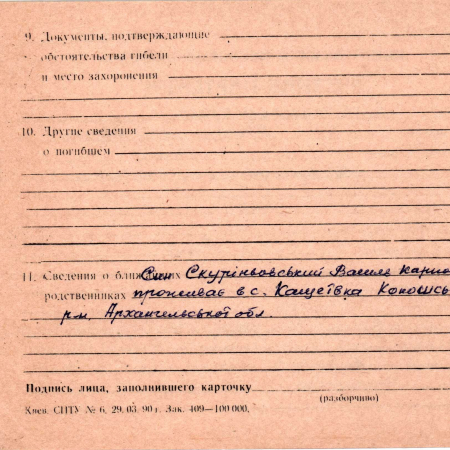 9. Документы, подтверждающие
обстоятельства гибели
и место захоронения
10. Другие сведения
о погибшем
11. Сведения о ближайших Син Скуріньовський Василь
родственниках проживає в с. Кащеївка
р-н. Архангельської обл.
Подпись лица, заполнившего карточку
(разборчиво)
Киев. СПТУ № 6. 29. 03. 90 г. Зак. 409—100 000.